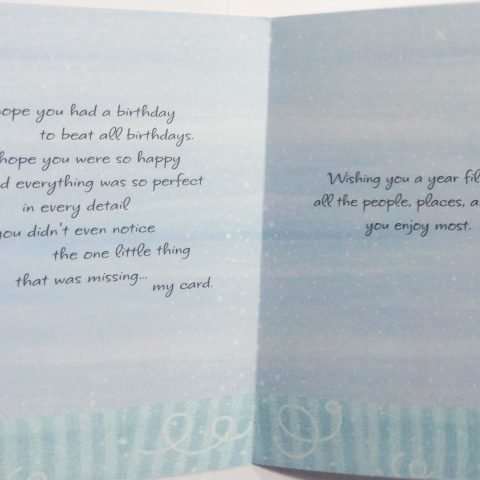 hope you had a birthday
to beat all birthdays.
hope you were so happy
everything was so perfect
in every detail
you didn't even notice
the one little thing
that was missing...
my card.
Wishing you a year
all the people, places,
you enjoy most.